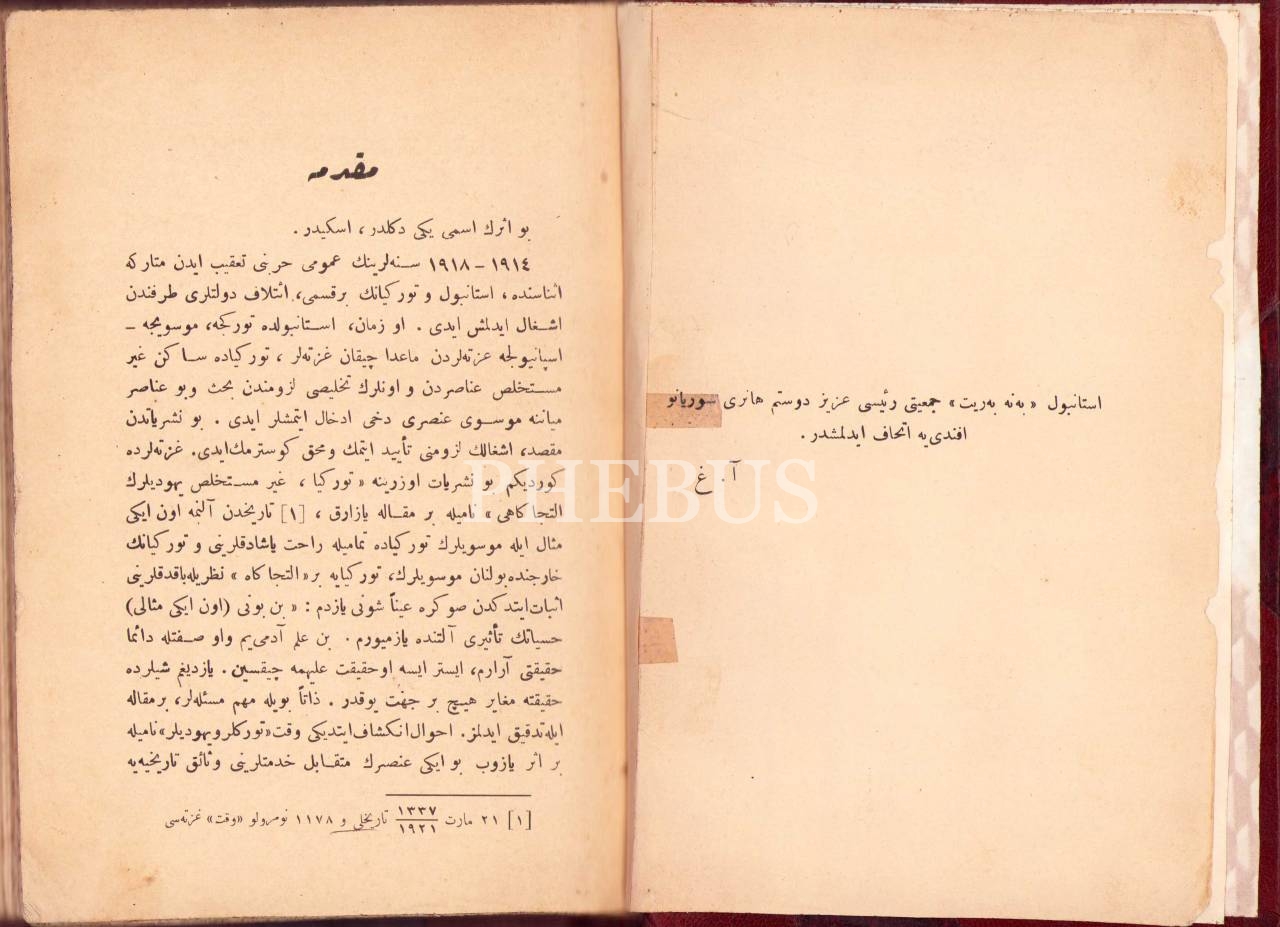 استانبول «بەنە بەریت» جمعیتی رئیسی عزیز دوستم هانری سوریانو
افندی‌یه اتحاف ایدلمشدر.
آ. غ
مقدمه
بو اثرك اسمی یکی دکلدر، اسکیدر.
۱۹۱٤ – ۱۹۱۸ سنه‌لرینك عمومی حربنی تعقیب ایدن متارکه
اثناسنده، استانبول و تورکیانك برقسمی، ائتلاف دولتلری طرفندن
اشغال ایدلمش ایدی. او زمان، استانبولده تورکجه، موسویجه –
اسپانیولجه غزته‌لردن ماعدا چیقان غزته‌لر، تورکیاده ساکن غیر
مستخلص عناصردن و اونلرك تخلیصی لزومندن بحث وبو عناصر
میاننه موسوی عنصری دخی ادخال ایتمشلر ایدی. بو نشریاتدن
مقصد، اشغالك لزومنی تأیید ایتمك ومحق کوسترمك‌ایدی. غزته‌لرده
کوردیکم بو نشریات اوزرینه «تورکیا، غیر مستخلص یهودیلرك
التجاکاهی» نامیله بر مقاله یازارق، [۱] تاریخدن آلنمه اون ایکی
مثال ایله موسویلرك تورکیاده تمامیله راحت یاشادقلرینی و تورکیانك
خارجنده‌بولنان موسویلرك، تورکیایه بر «التجاکاه» نظریله‌باقدقلرینی
اثبات‌ایتدکدن صوکره عیناً شونی یازدم: «بن بونی (اون ایکی مثالی)
حسیاتك تأثیری آلتنده یازمیورم. بن علم آدمی‌یم واو صفتله دائما
حقیقتی آرارم، ایستر ایسه اوحقیقت علیهمه چیقسین. یازدیغم شیلرده
حقیقته مغایر هیچ بر جهت یوقدر. ذاتاً بویله مهم مسئله‌لر، برمقاله
ایله‌تدقیق ایدلمز. احوال‌انکشاف‌ایتدیکی وقت«تورکلرویهودیلر»نامیله
بر اثر یازوب بو ایکی عنصرك متقابل خدمتلرینی وثائق تاریخیه‌یه
[۱] ۲۱ مارت ۱۳۳۷/۱۹۲۱ تاریخلی و ۱۱۷۸ نومرولو «وقت» غزته‌سی
PHEBUS